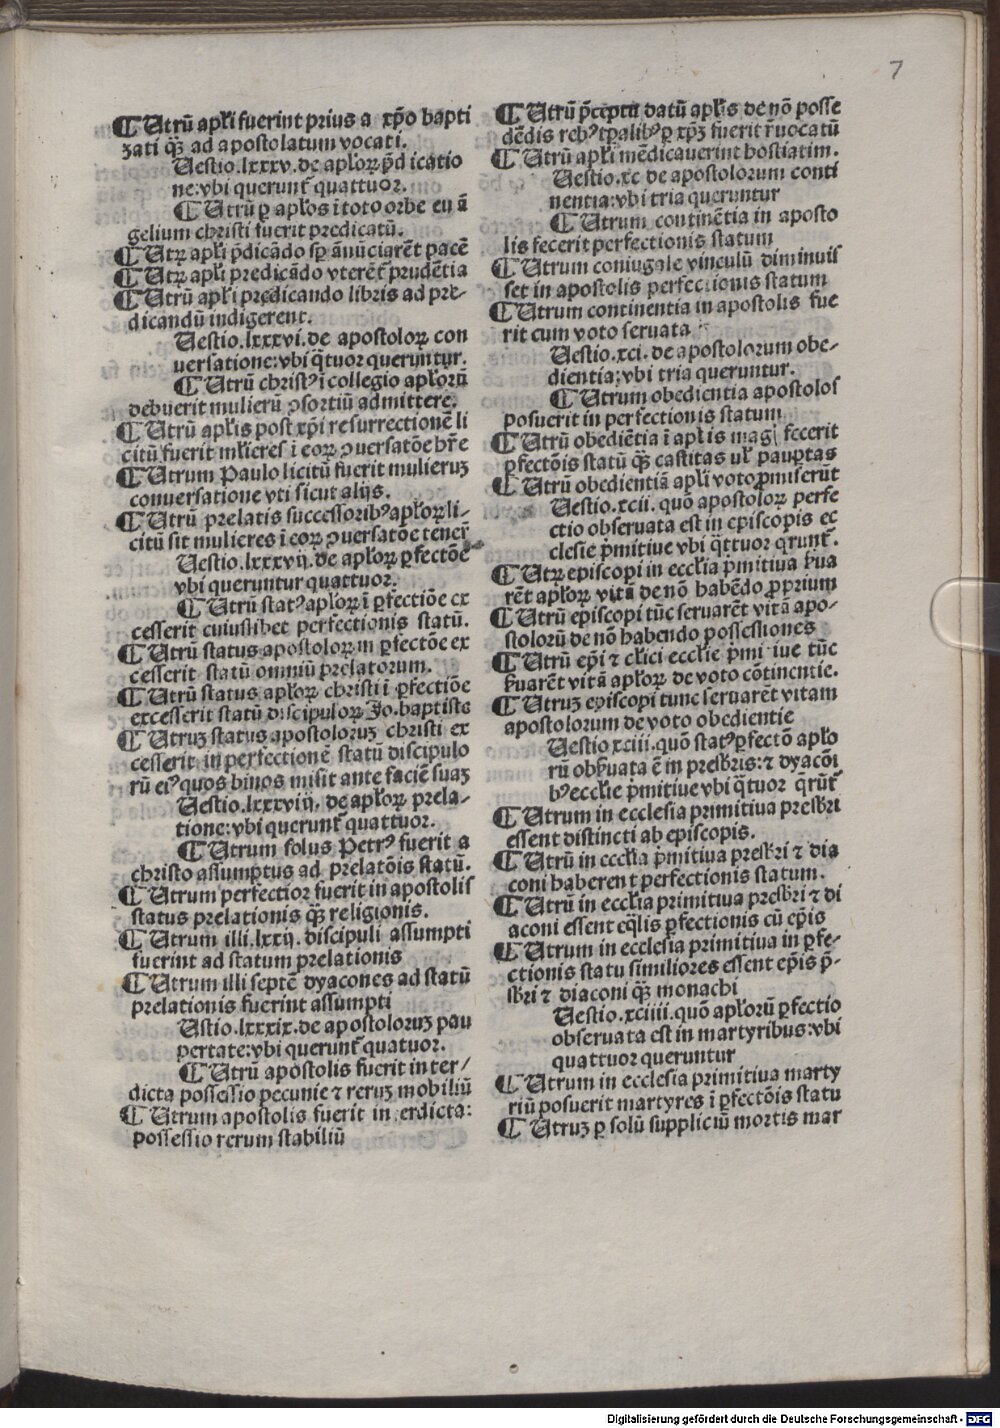 7
¶ Utrū apłi fuerint prius a xp̄o bapti
zati q̄ꝫ ad apostolatum vocati.
Uestio.lxxxv.de apłoꝝ p̄dicatio
ne:vbi querunt᷑ quattuor.
¶ Utrū ꝑ apłos ī toto orbe euā
gelium christi fuerit predicatū.
¶ Utꝝ apłi p̄dicādo sꝑ ānūciarēt pacē
¶ Utꝝ apłi predicādo vterēt᷑ prudētia
¶ Utrū apłi predicando libris ad pre-
dicandū indigerent.
Uestio.lxxxvi.de apostoloꝝ con
uersatione:vbi q̄tuor queruntur.
¶ Utrū christꝰ ī collegio apłorū
debuerit mulierū ꝯsortiū admittere.
¶ Utrū apłis post xp̄i resurrectionē li
citū fuerit mlieres ī eoꝝ ꝯuersatōe hr̄e
¶ Utrum Paulo licitū fuerit mulieruꝫ
conuersatione vti sicut alijs.
¶ Utrū prelatis successoribꝰ apłoꝝ li-
citū sit mulieres ī eoꝝ ꝯuersatōe tener᷑
Uestio.lxxxvij.de apłoꝝ ꝑfectōe
vbi queruntur quattuor.
¶ Utrū statꝰ apłoꝝ ī ꝑfectiōe ex
cesserit cuiuslibet perfectionis statū.
¶ Utrū status apostoloꝝ in ꝑfectōe ex
cesserit statū omniū prelatorum.
¶ Utrū status apłoꝝ christi ī ꝑfectiōe
excesserit statū discipuloꝝ Jo.baptiste
¶ Utruꝫ status apostoloruꝫ christi ex
cesserit in perfectionē statū discipulo
rū eiꝰ quos binos misit ante faciē suaꝫ
Uestio.lxxxviij. de apłoꝝ prela-
tione:vbi querunt᷑ quattuor.
¶ Utrum solus Petrꝰ fuerit a
christo assumptus ad prelatōis statū.
¶ Utrum perfectior fuerit in apostolis
status prelationis q̄ꝫ religionis.
¶ Utrum illi.lxxij. discipuli assumpti
fuerint ad statum prelationis
¶ Utrum illi septē dyacones ad statū
prelationis fuerint assumpti
Ustio.lxxxix.de apostoloruꝫ pau
pertate:vbi querunt᷑ quatuor.
¶ Utrū apostolis fuerit inter-
dicta possessio pecunie ⁊ reruꝫ mobiliū
¶ Utrum apostolis fuerit in erdicta:
possessio rerum stabiliū
¶ Utrū p̄ceptū datū apłis de nō posse
dēdis rebꝰ tꝑalibꝰ ꝑ xp̄ꝫ fuerit r̄uocatū
¶ Utrū apłi mēdicauerint hostiatim.
Uestio.xc de apostolorum conti
nentia:vbi tria queruntur
¶ Utrum continētia in aposto
lis fecerit perfectionis statum
¶ Utrum coniugale vinculū diminuis
set in apostolis perfectionis statum
¶ Utrum continentia in apostolis fue
rit cum voto seruata
Uestio.xci.de apostolorum obe-
dientia:vbi tria queruntur.
¶ Utrum obedientia apostolos
posuerit in perfectionis statum
¶ Utrū obediētia ī apłis magl fecerit
ꝑfectōis statū q̄ꝫ castitas uł pauꝑtas
¶ Utrū obedientiā apłi voto ꝓmiserūt
Uestio.xcii. quō apostoloꝝ perfe
ctio obseruata est in episcopis ec
clesie p̄mitiue vbi q̄ttuor qrunt᷑.
¶ Utꝝ episcopi in ecclia p̄mitiua ẜua
rēt apłoꝝ vitā de nō habēdo ꝓprium
¶ Utrū episcopi tūc seruarēt vitā apo-
stolorū de nō habendo possessiones
¶ Utrū ep̄i ⁊ clici ecclie p̄mi iue tūc
ẜuarēt vitā apłoꝝ de voto cōtinentie.
¶ Utruꝫ episcopi tunc seruarēt vitam
apostolorum de voto obedientie
Uestio xciii.quō statꝰ ꝑfectō apło
rū obẜuata ē in presbris:⁊ dyacōi
bꝰ ecclie p̄mitiue vbi q̄tuor q̄rūt᷑
¶ Utrum in ecclesia primitiua presbri
essent distincti ab episcopis.
¶ Utrū in ecclia p̄mitiua presbri ⁊ dia
coni haberent perfectionis statum.
¶ Utrū in ecclia primitiua presbri ⁊ di
aconi essent eq̄lis ꝑfectionis cū ep̄is
¶ Utrum in ecclesia primitiua in ꝑfe-
ctionis statu similiores essent ep̄is p̄-
sbri ⁊ diaconi q̄ꝫ monachi
Uestio.xciiii.quō apłorū ꝑfectio
obseruata est in martyribus:vbi
quattuor queruntur
¶ Utrum in ecclesia primitiua marty
riū posuerit martyres ī ꝑfectōis statu
¶ Utruꝫ ꝑ solū suppliciū mortis mar
Digitalisierung gefördert durch die Deutsche Forschungsgemeinschaft - DFG